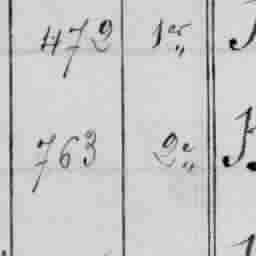 472 1er „
763 2e „